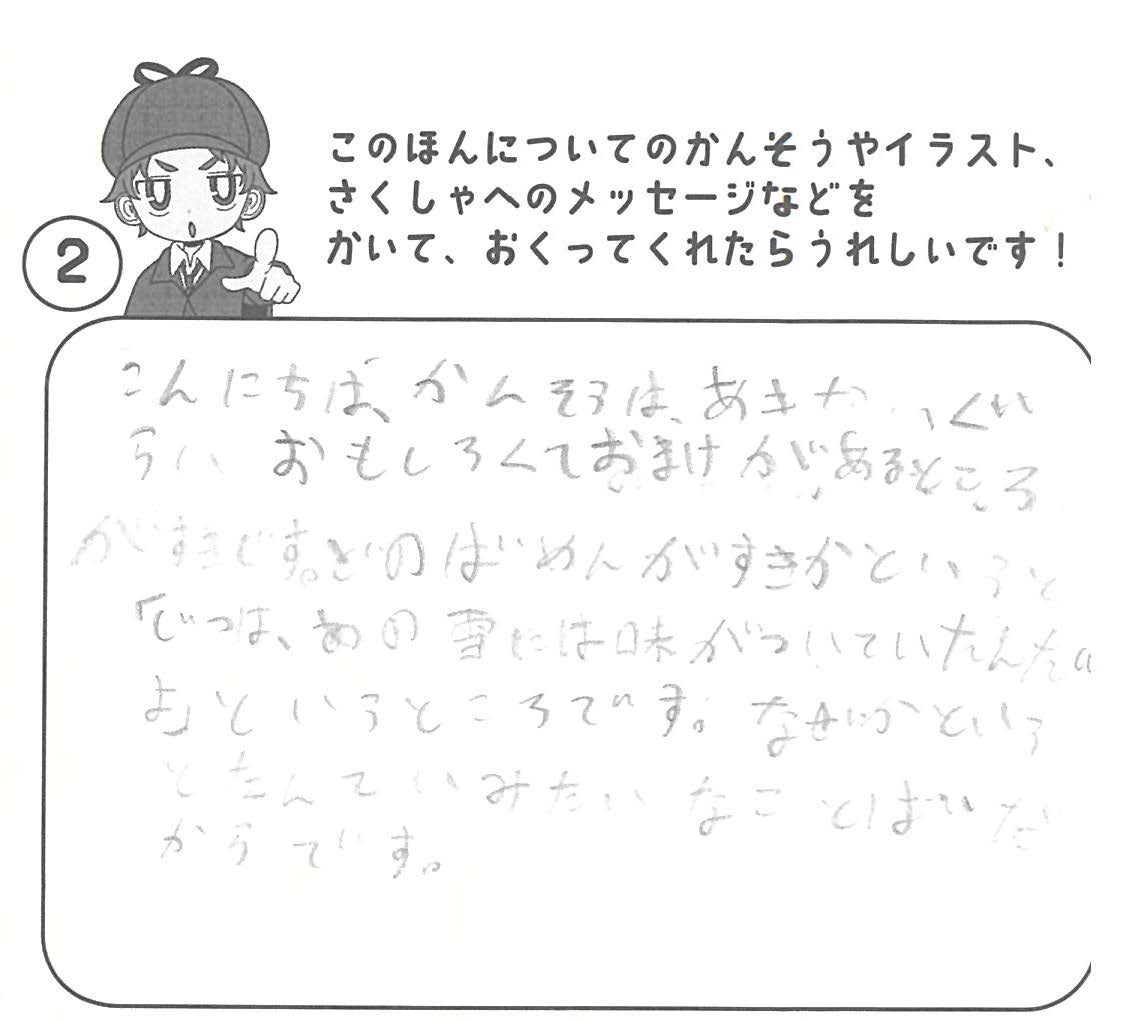 このほんについてのかんそうやイラスト、
さくしゃへのメッセージなどを
かいて、おくってくれたらうれしいです!
2
こんにちは、かんそうは、あきな いくい
らい おもしろくておまけが、あるところ
がすきです。どのばめんがすきかというと
「じつは、あの雪には味がついていたんだ
よ」というところです。なぜかという
とたんていみたいなことばいだ
からです。